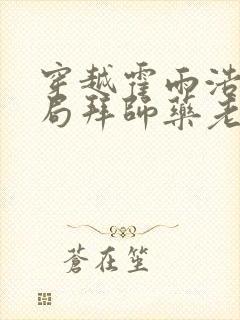 穿越霍雨浩
局拜師藥老
蒼在笙